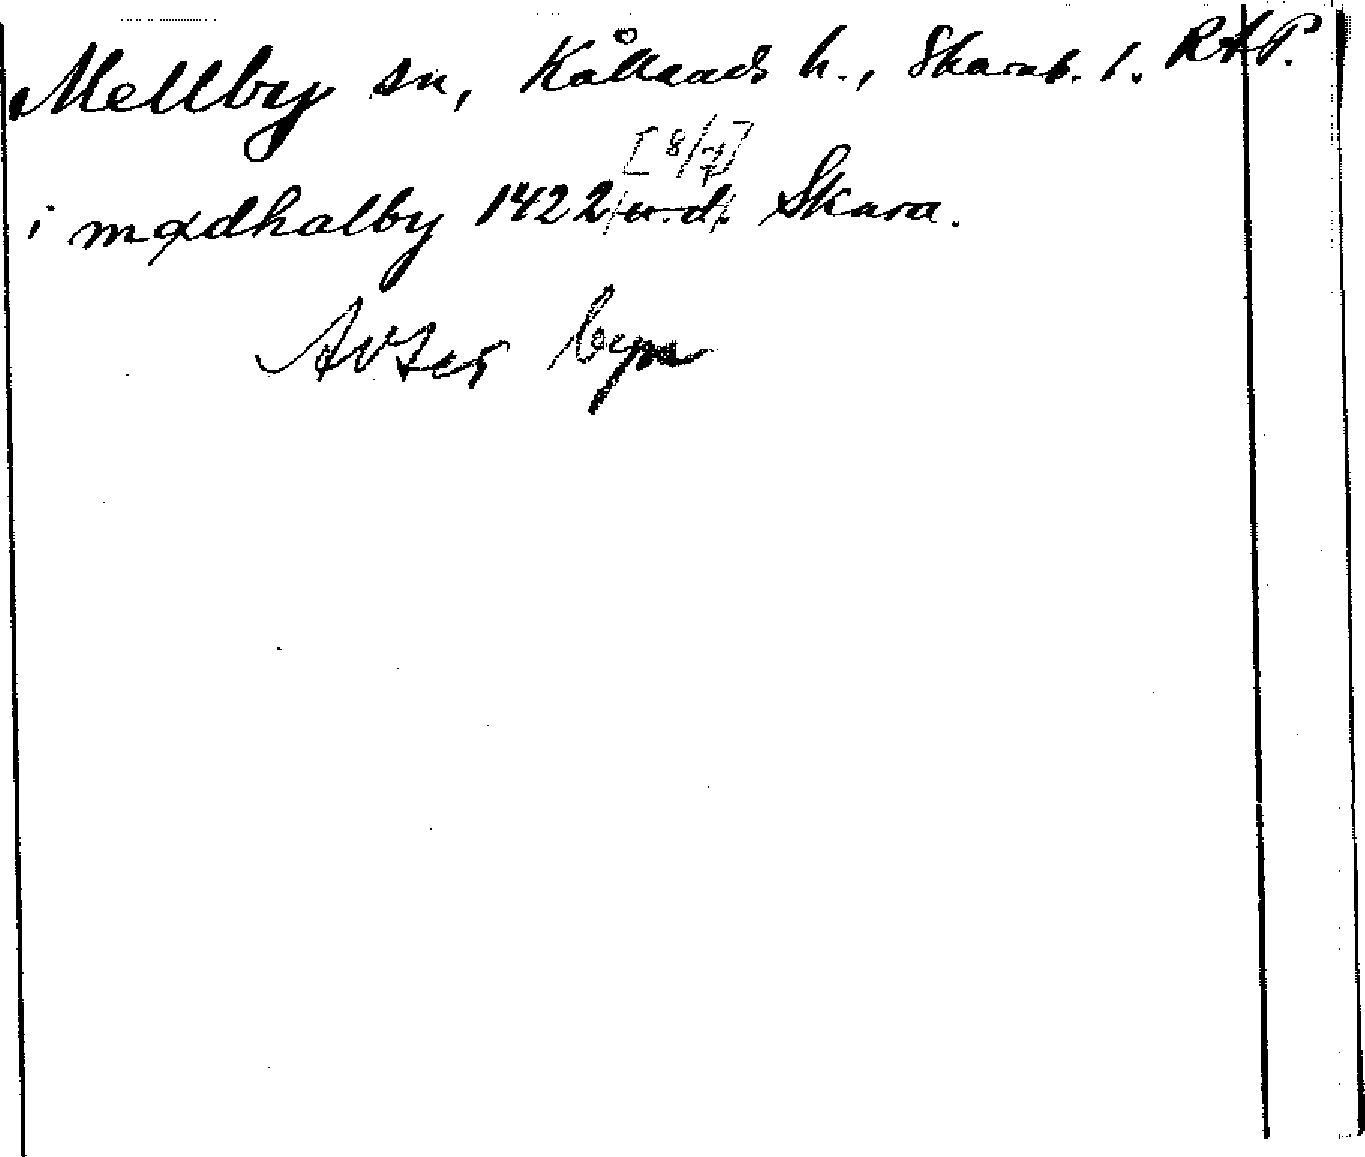 Mellby sn, Kållands h., Skarab. l. RAP.
[8/7]
i mædhalby 1422 u.d. Skara.
Avser byn